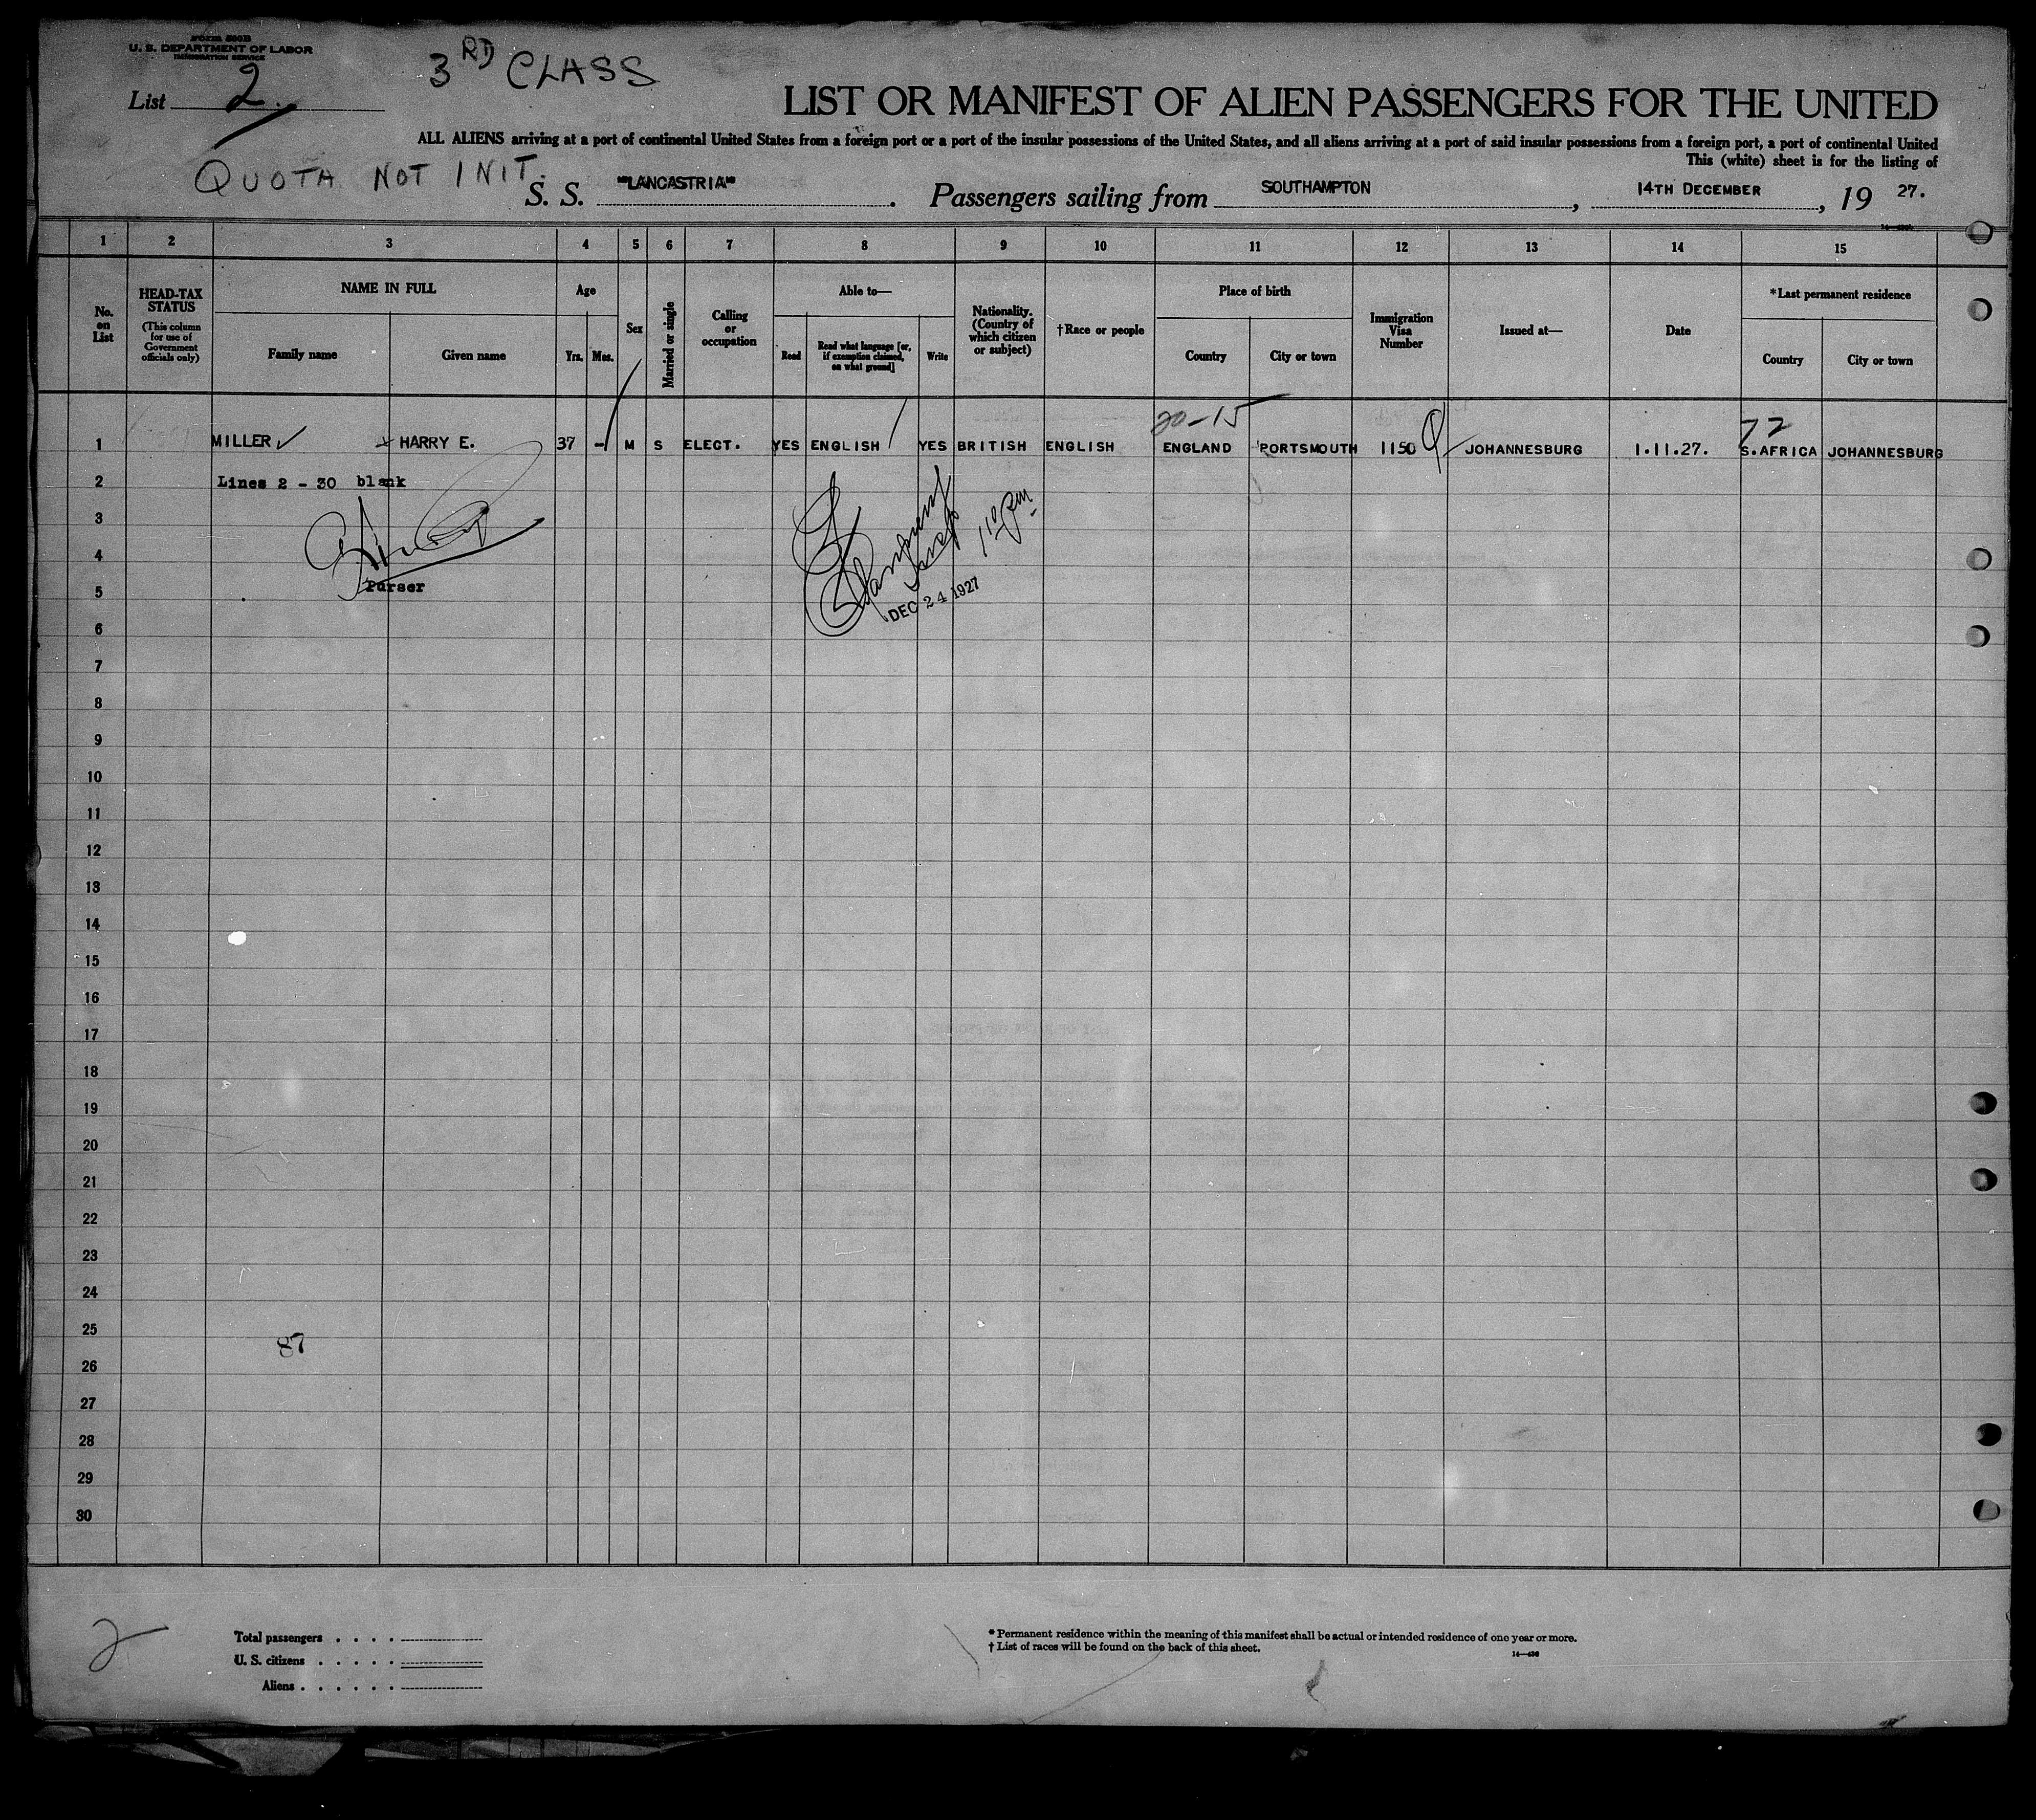 Form 500B
U. S. DEPARTMENT OF LABOR
IMMIGRATION SERVICE
3RD CLASS
List 2
LIST OR MANIFEST OF ALIEN PASSENGERS FOR THE UNITED
ALL ALIENS arriving at a port of continental United States from a foreign port or a port of the insular possessions of the United States, and all aliens arriving at a port of said insular possessions from a foreign port, a port of continental United
This (white) sheet is for the listing of
QUOTA NOT INIT.
S. S. "LANCASTRIA". Passengers sailing from SOUTHAMPTON, 14TH DECEMBER, 19 27.
1 2 3 4 5 6 7 8 9 10 11 12 13 14 15
No. on List
HEAD-TAX STATUS (This column for use of Government officials only)
NAME IN FULL
Family name Given name
Age
Yrs. Mos.
Sex
Married or single
Calling or occupation
Able to—
Read Read what language [or, if exemption claimed, on what ground] Write
Nationality. (Country of which citizen or subject)
†Race or people
Place of birth
Country City or town
Immigration Visa Number
Issued at—
Date
*Last permanent residence
Country City or town
20-15
72
1 MILLER HARRY E. 37 - M S ELECT. YES ENGLISH YES BRITISH ENGLISH ENGLAND PORTSMOUTH 1150 Q JOHANNESBURG 1.11.27. S.AFRICA JOHANNESBURG
2 Lines 2 - 30 blank
3
4
5
Purser
Insp 1 10 pm
DEC 24 1927
6
7
8
9
10
11
12
13
14
15
16
17
18
19
20
21
22
23
24
25
87
26
27
28
29
30
2
Total passengers
U. S. citizens
Aliens
* Permanent residence within the meaning of this manifest shall be actual or intended residence of one year or more.
† List of races will be found on the back of this sheet.